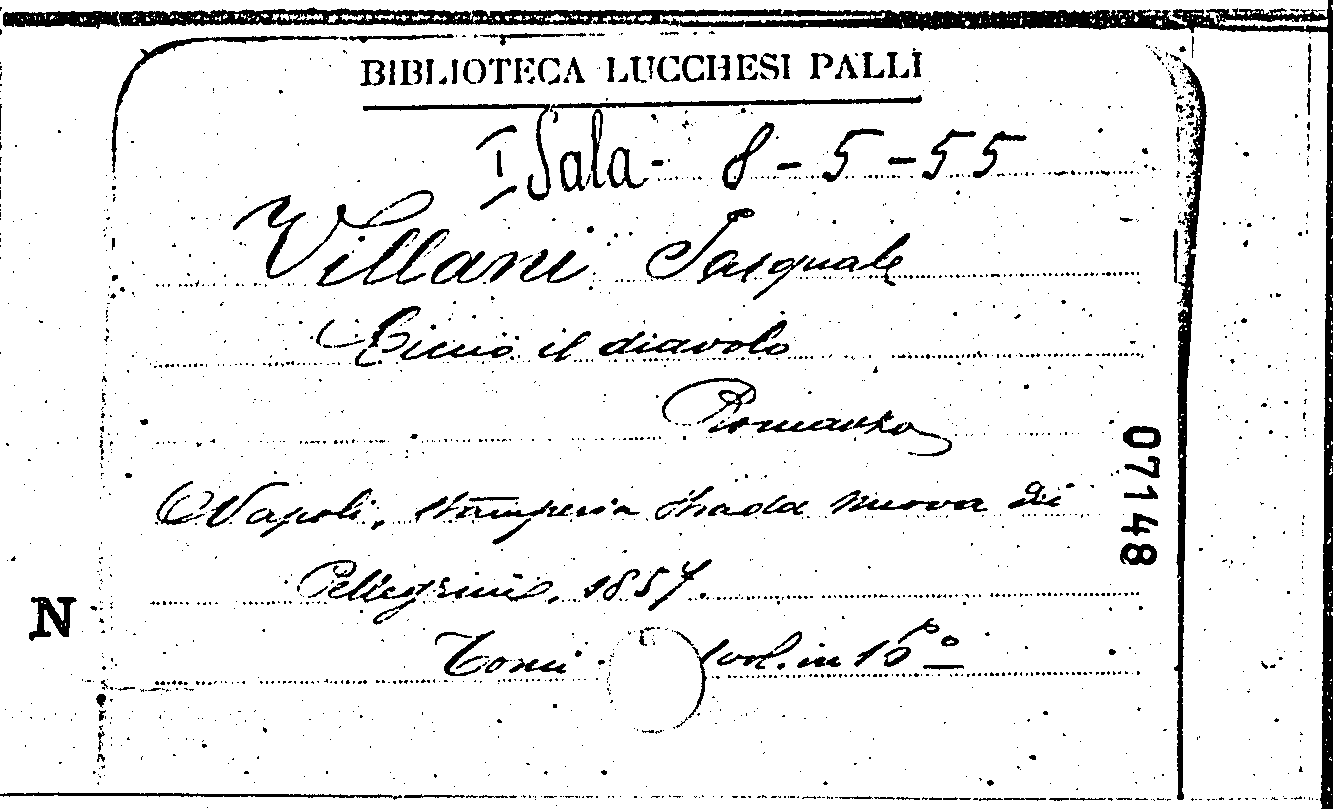 BIBLIOTECA LUCCHESI PALLI
I Sala - 8-5-55
Villani Pasquale
il diavolo
Romanzo
Napoli, stamperia strada nuova dei
Pellegrini, 1857.
Tomi 1 vol. in 16°
07148
N